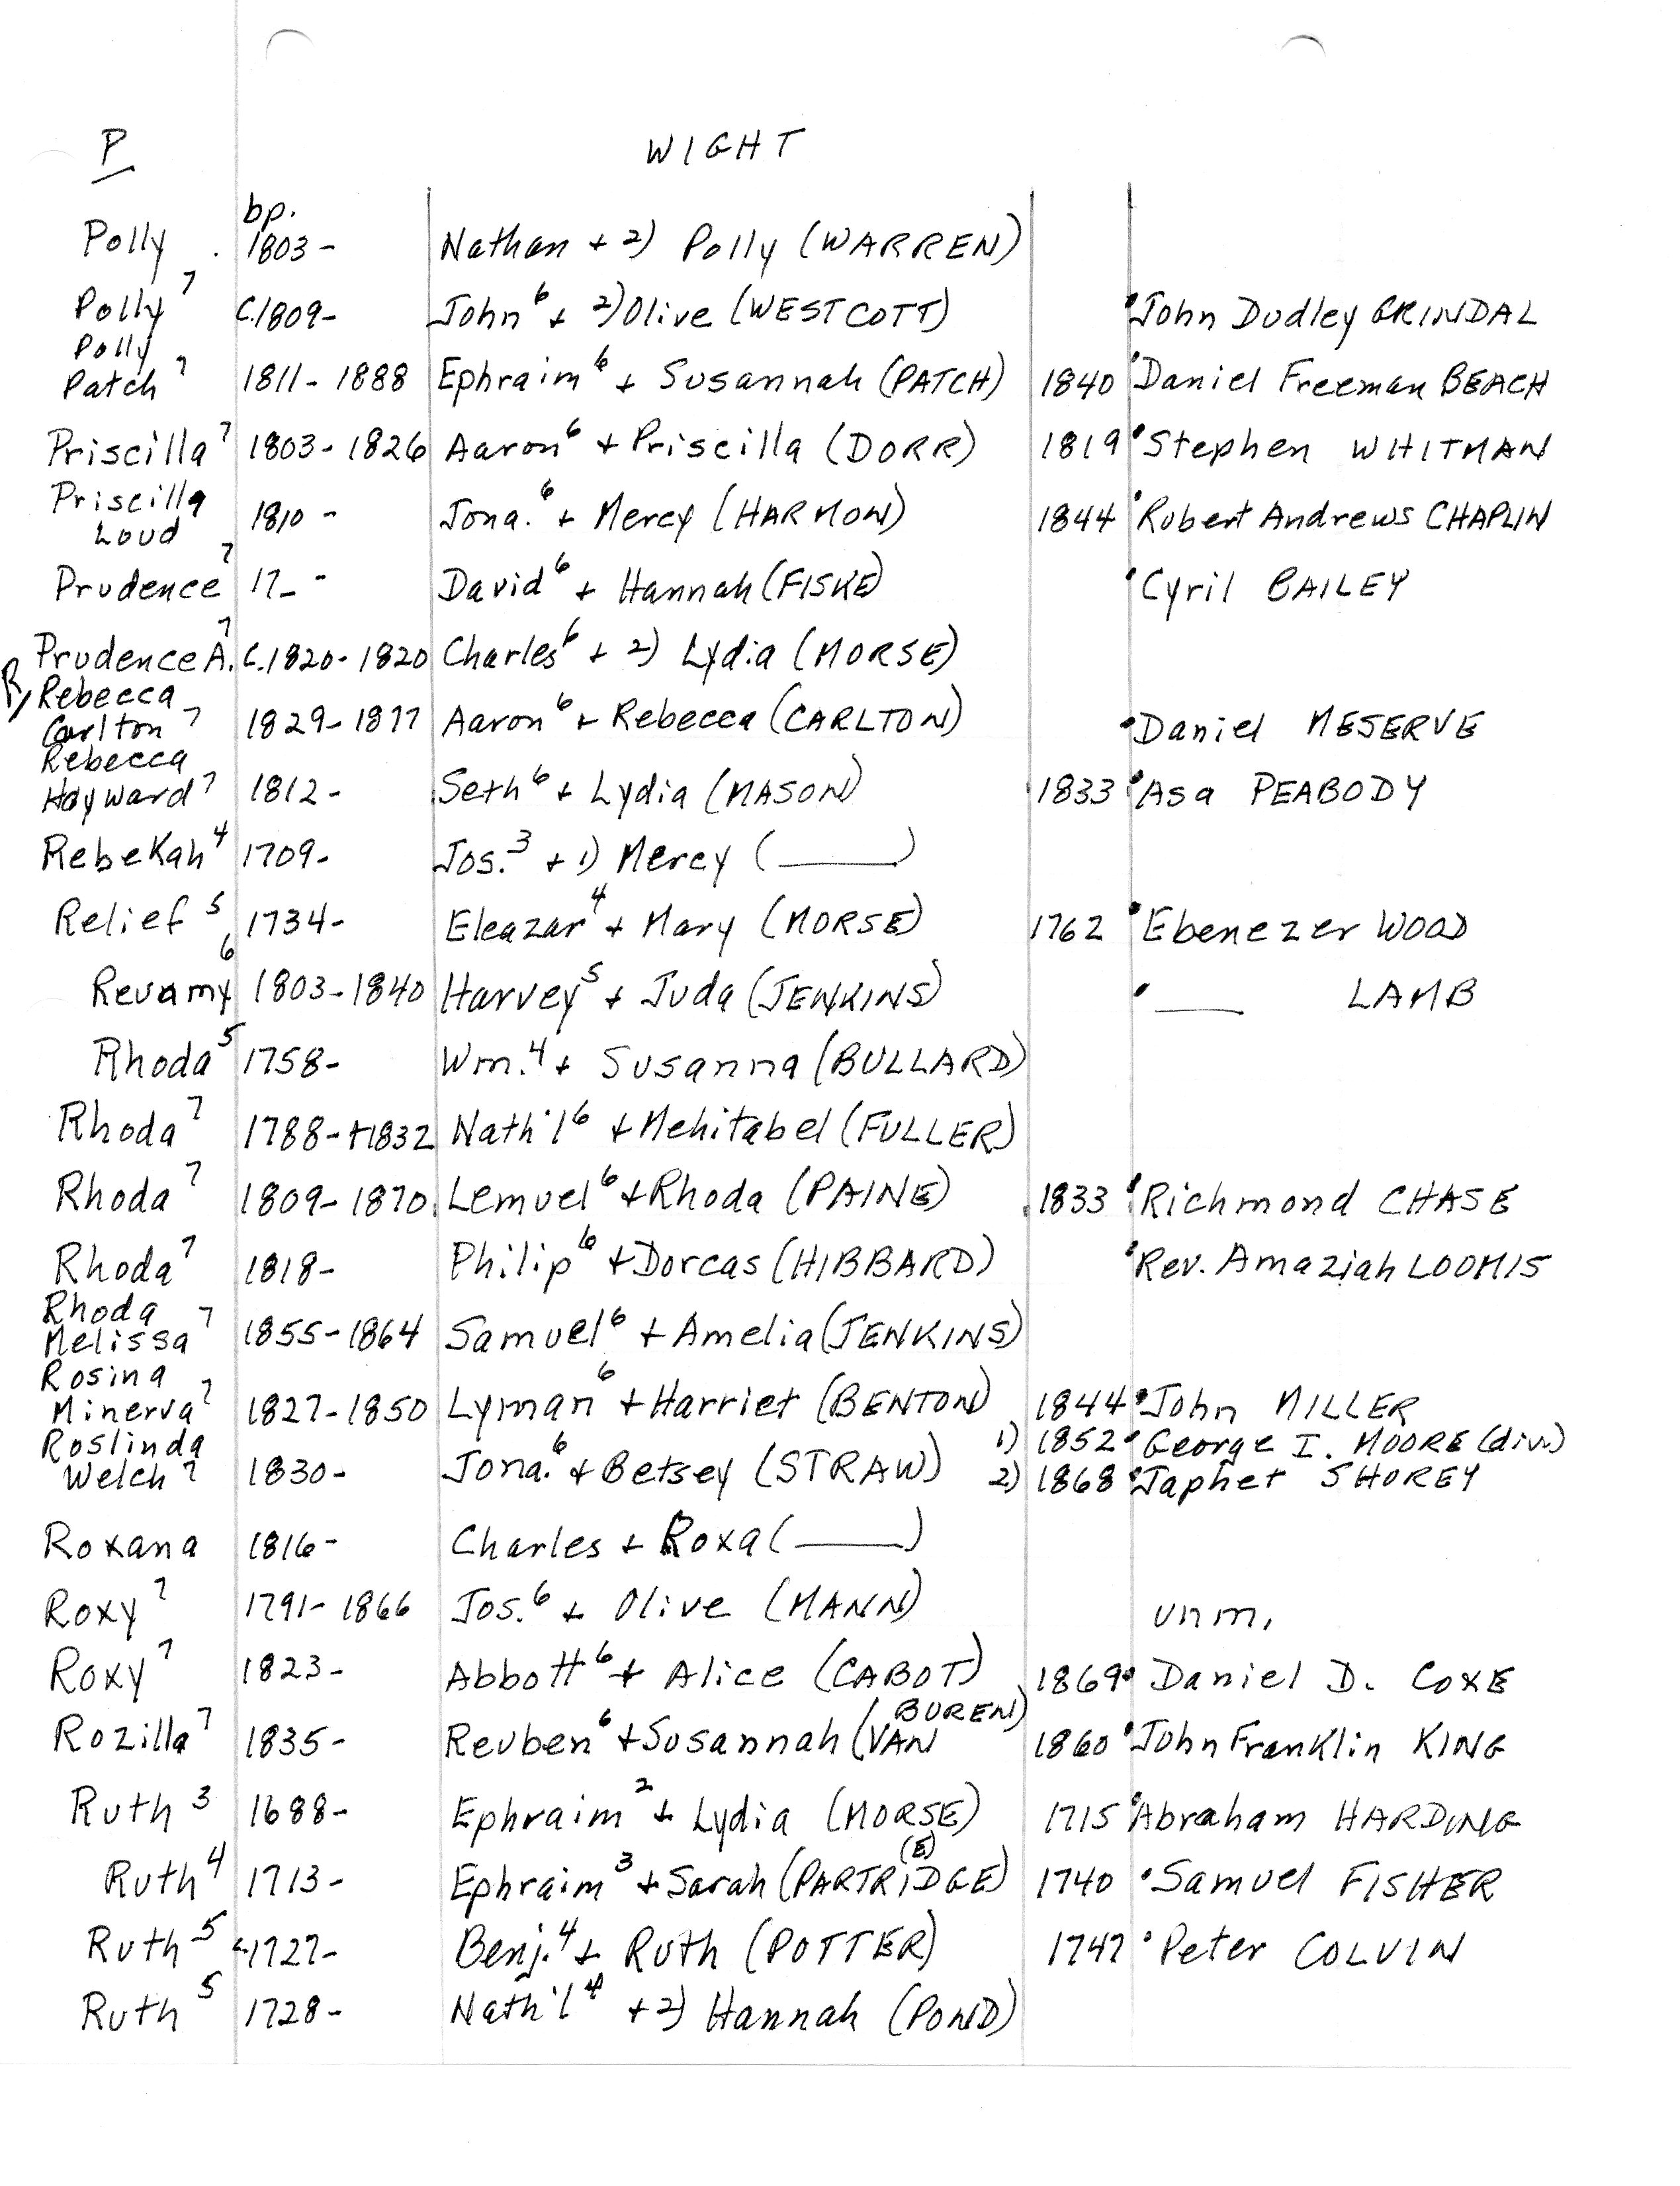 P WIGHT
bp.
Polly . 1803- Nathan + 2) Polly (WARREN)
Polly⁷ C.1809- John⁶ + 2) Olive (WESTCOTT) John Dudley GRINDAL
Polly
Patch⁷ 1811-1888 Ephraim⁶ + Susannah (PATCH) 1840 Daniel Freeman BEACH
Priscilla⁷ 1803-1826 Aaron⁶ + Priscilla (DORR) 1819 Stephen WHITMAN
Priscilla
Loud 1810- Jona.⁶ + Mercy (HARMON) 1844 Robert Andrews CHAPLIN
Prudence⁷ 17_- David⁶ + Hannah (FISKE) Cyril BAILEY
Prudence A.⁷ C.1820-1820 Charles⁶ + 2) Lydia (MORSE)
R, Rebecca
Carlton⁷ 1829-1877 Aaron⁶ + Rebecca (CARLTON) Daniel MESERVE
Rebecca
Hayward⁷ 1812- Seth⁶ + Lydia (MASON) 1833 Asa PEABODY
Rebekah⁴ 1709- Jos.³ + 1) Mercy (____)
Relief⁵ 1734- Eleazar⁴ + Mary (MORSE) 1762 Ebenezer WOOD
Revamy⁶ 1803-1840 Harvey⁵ + Juda (JENKINS) ____ LAMB
Rhoda⁵ 1758- Wm.⁴ + Susanna (BULLARD)
Rhoda⁷ 1788-+1832 Nath'l⁶ + Mehitabel (FULLER)
Rhoda⁷ 1809-1870 Lemuel⁶ + Rhoda (PAINE) 1833 Richmond CHASE
Rhoda⁷ 1818- Philip⁶ + Dorcas (HIBBARD) Rev. Amaziah LOOMIS
Rhoda
Melissa⁷ 1855-1864 Samuel⁶ + Amelia (JENKINS)
Rosina
Minerva⁷ 1827-1850 Lyman⁶ + Harriet (BENTON) 1844 John MILLER
Roslinda 1) 1852 George I. MOORE (div.)
Welch⁷ 1830- Jona.⁶ + Betsey (STRAW) 2) 1868 Japhet SHOREY
Roxana 1816- Charles + Roxa (____)
Roxy⁷ 1791-1866 Jos.⁶ + Olive (MANN) unm.
Roxy⁷ 1823- Abbott⁶ + Alice (CABOT) 1869 Daniel D. COXE
BUREN)
Rozilla⁷ 1835- Reuben⁶ + Susannah (VAN 1860 John Franklin KING
Ruth³ 1688- Ephraim² + Lydia (MORSE) 1715 Abraham HARDING
(E)
Ruth⁴ 1713- Ephraim³ + Sarah (PARTRIDGE) 1740 Samuel FISHER
Ruth⁵ c.1727- Benj.⁴ + Ruth (POTTER) 1747 Peter COLVIN
Ruth⁵ 1728- Nath'l⁴ + 2) Hannah (POND)